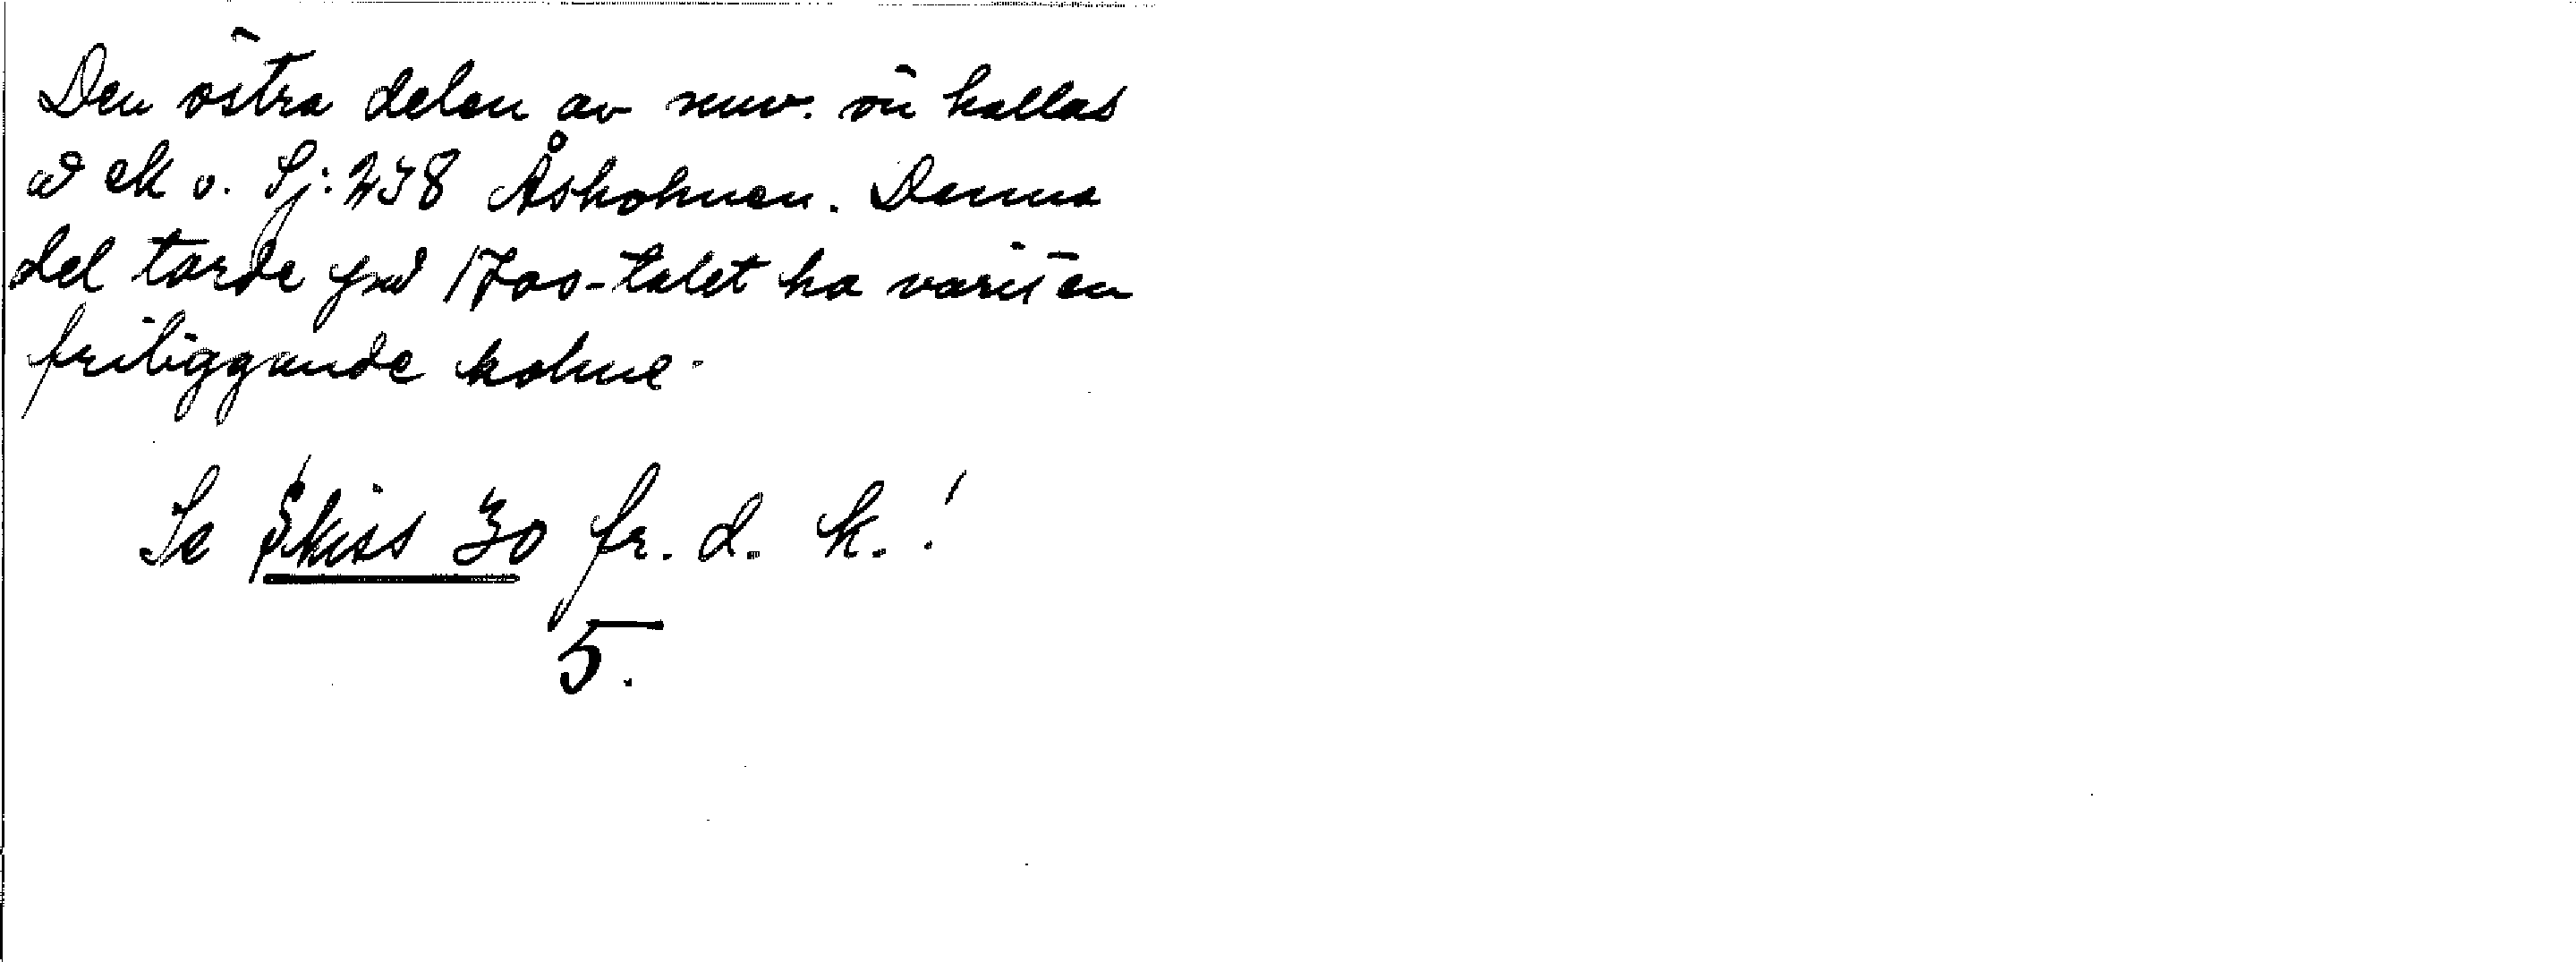 Den östra delen av nuv. ön kallas
å ek v. Sj: 238 Åsholmen. Denna
del torde på 1700-talet ha varit en
friliggande holme.
Se Skiss 30 fr. d. k.!
5.